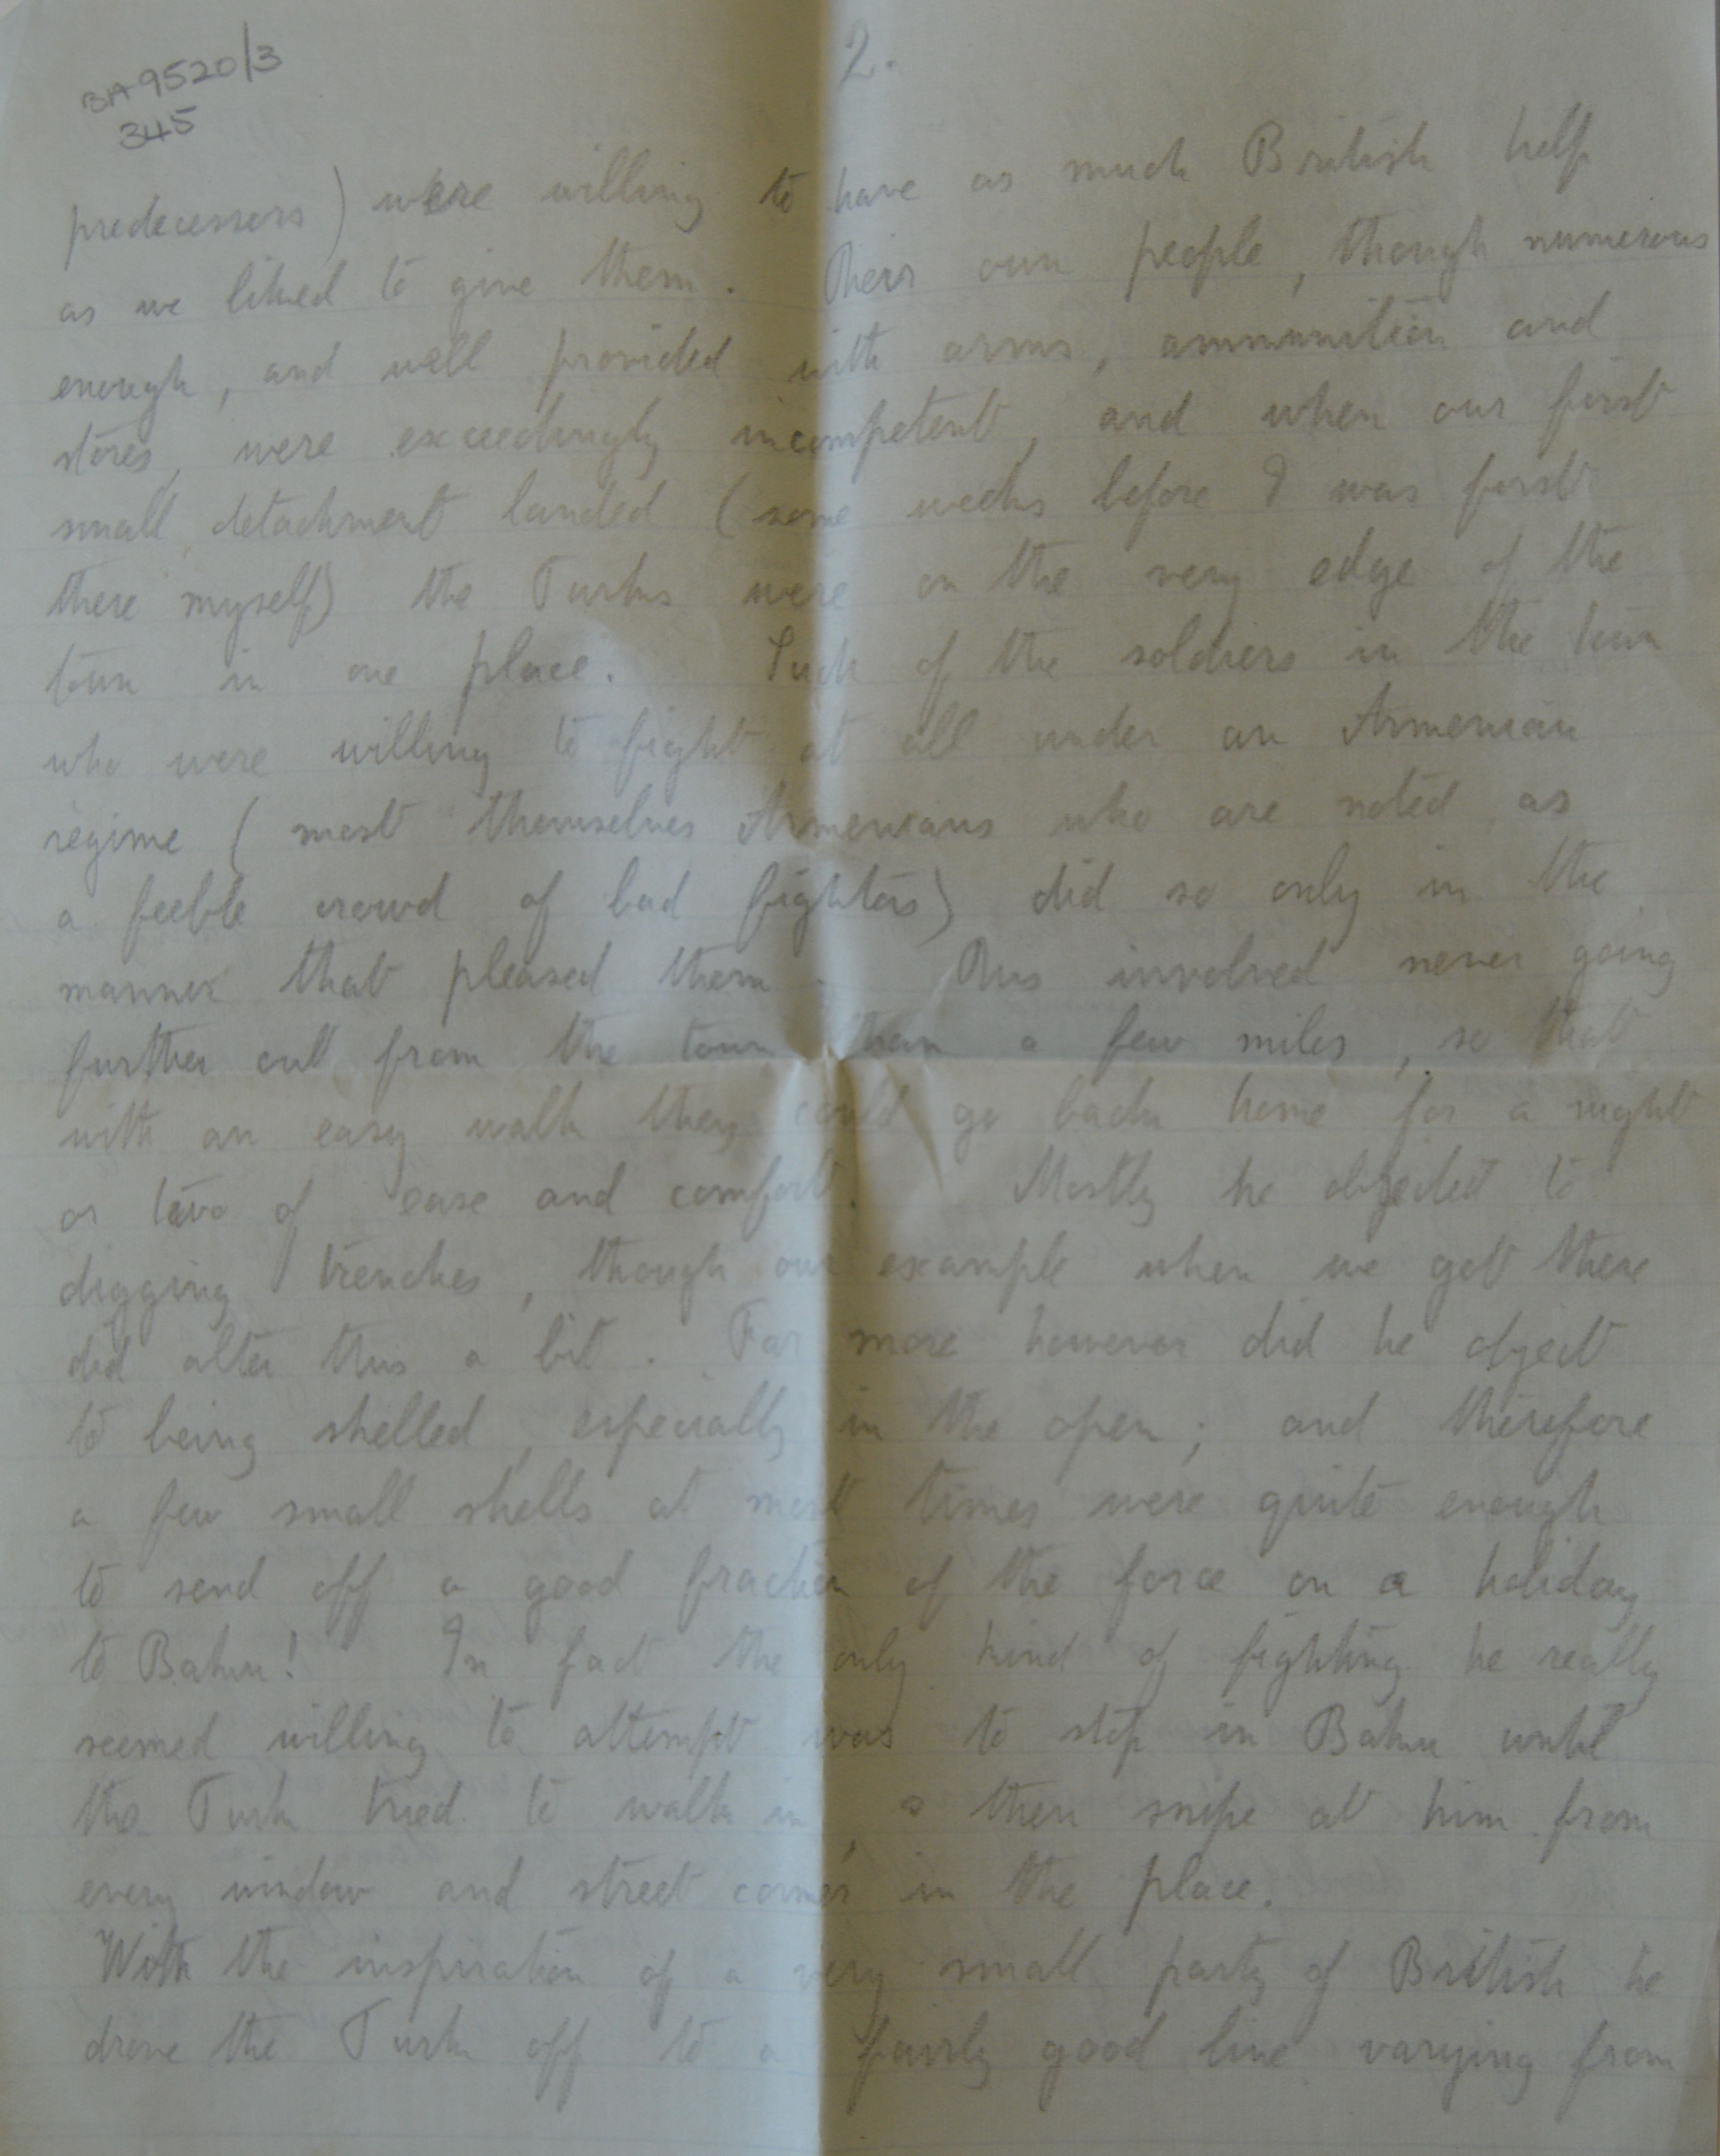 BA 9520/3
345
2.
predecessors) were willing to have as much British help
as we liked to give them. Their own people, though numerous
enough, and well provided with arms, ammunition and
stores, were exceedingly incompetent, and when our first
small detachment landed (some weeks before I was first
there myself) the Turks were on the very edge of the
town in one place. Such of the soldiers in the town
who were willing to fight at all under an Armenian
regime (most themselves Armenians who are noted as
a feeble crowd of bad fighters) did so only in the
manner that pleased them. This involved never going
further out from the town than a few miles, so that
with an easy walk they could go back home for a night
or two of ease and comfort. Mostly he objected to
digging trenches, though our example when we got there
did alter this a bit. Far more however did he object
to being shelled, especially in the open; and therefore
a few small shells at most times were quite enough
to send off a good fraction of the force on a holiday
to Baku! In fact the only kind of fighting he really
seemed willing to attempt was to stop in Baku until
the Turk tried to walk in, & then snipe at him from
every window and street corner in the place.
With the inspiration of a very small party of British he
drove the Turk off to a fairly good line varying from